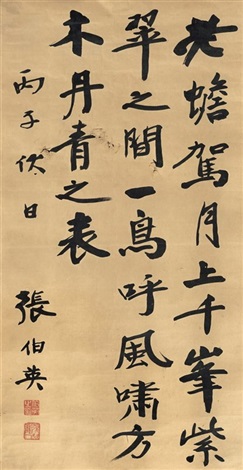 光蟾駕月上千峯紫
翠之間一鳥呼風嘯方
木丹青之表
丙子伏日
張伯英